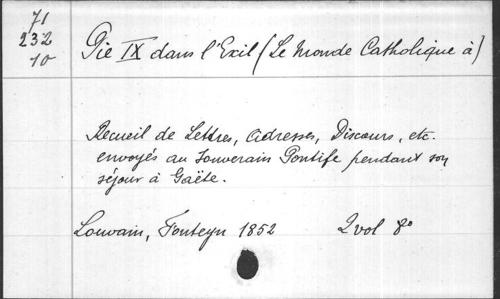 71
232
10
Pie IX dans l'Exil (Le Monde Catholique à)
Recueil de Lettres, Adresses, Discours, etc.
envoyés au Souverain Pontife pendant son
séjour à Gaëte.
Louvain, Fonteyn 1852 2 vol 8°